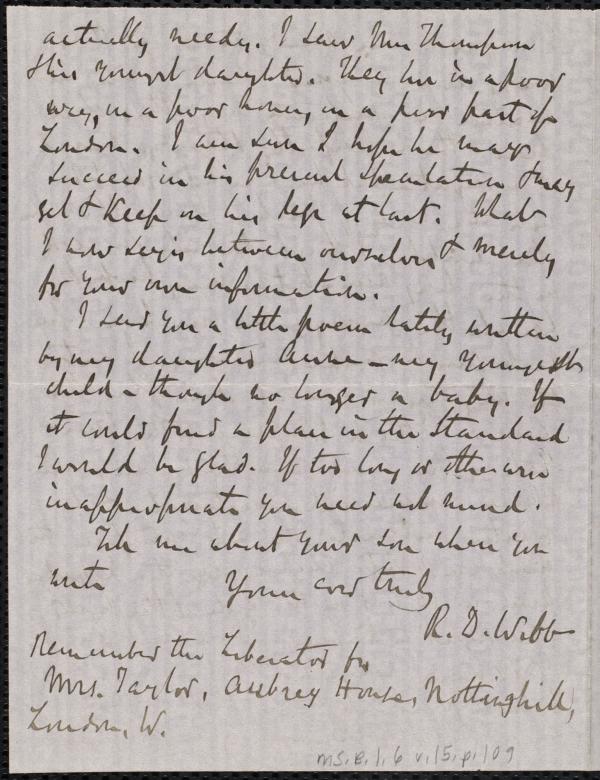 actually needy. I saw Mrs Thompson
& his youngest daughter. They live in a poor
way, in a poor house, in a poor part of
London. I am sure I hope he may
succeed in his present speculation & may
get & keep on his legs at last. What
I now say is between ourselves & merely
for your own information.
I send you a little poem lately written
by my daughter Anne — my youngest
child – though no longer a baby. If
it could find a place in the Standard
I would be glad. If too long or otherwise
inappropriate you need not mind.
Tell me about your son when you
write Yours truly
R. D. Webb
Remember the Liberator for
Mrs. Taylor, Aubrey House, Nottinghill,
London, W.
MS. B. 1. 6 v. 15, p. 109